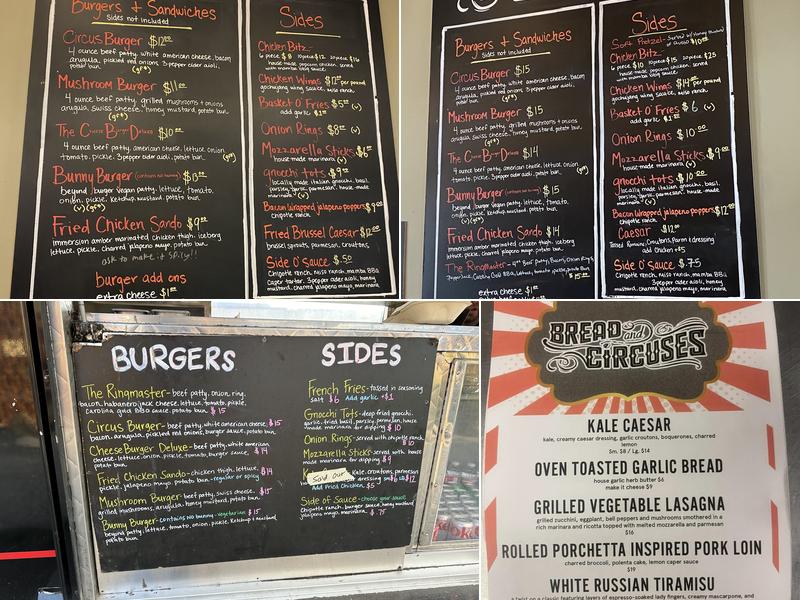 Burgers & Sandwiches
Sides not included
Circus Burger $12.00
4 ounce beef patty, white american cheese, bacon
arugula, pickled red onions, 3 pepper cider aioli,
potato bun. (gf*)
Mushroom Burger $11.00
4 ounce beef patty, grilled mushrooms & onions
arugula, swiss cheese, honey mustard, potato bun.
(gf*)
The Cheese Burger Deluxe $10.00
4 ounce beef patty, american cheese, lettuce, onion
tomato, pickle, 3 pepper cider aioli, potato bun. (gf*)
Bunny Burger (contains no bunny) $
beyond burger vegan patty, lettuce, tomato,
onion, pickle, Ketchup, mustard, potato bun.
(v) (gf*)
Fried Chicken Sando $9.00
immersion amber marinated chicken thigh, iceberg
lettuce, pickle, charred jalapeno mayo, potato bun.
ask to make it spicy!!
burger add ons
extra cheese $1.00
Sides
Chicken Bitz
6 piece $8 10 piece $12 20 piece $16
house made, popcorn chicken, served
with mambo bbq sauce.
Chicken Wings $12.00 per pound
gochujang wing sauce, miso ranch.
Basket O' Fries $5.00 (v)
add garlic $1.00
Onion Rings $8.00 (v)
Mozzarella Sticks $6
house made marinara (v)
gnocchi tots $9.00
locally made italian gnocchi, basil,
parsley, garlic, parmesan, house made
marinara (v)
Bacon Wrapped jalapeno poppers $9.00
chipotle ranch
Fried Brussel Caesar $12.00
brussel sprouts, parmesan, croutons
Side O' Sauce $.50
Chipotle ranch, miso ranch, mamba BBQ
Caper tartar, 3 pepper cider aioli, honey
mustard, charred jalapeno mayo, marinara
Burgers & Sandwiches
Sides not included
Circus Burger $15
4 ounce beef patty, white american cheese, bacon
arugula, pickled red onions, 3 pepper cider aioli, potato bun.
(gf*)
Mushroom Burger $15
4 ounce beef patty, grilled mushrooms & onions
arugula, swiss cheese, honey mustard, potato bun.
(gf*)
The Cheese Burger Deluxe $14
4 ounce beef patty, american cheese, lettuce, onion
tomato, pickle, 3 pepper cider aioli, potato bun. (gf*)
Bunny Burger (contains no bunny) $15
beyond burger vegan patty, lettuce, tomato,
onion, pickle, Ketchup, mustard, potato bun.
(v) (gf*)
Fried Chicken Sando $14
immersion amber marinated chicken thigh, iceberg
lettuce, pickle, charred jalapeno mayo, potato bun.
The Ringmaster - 4oz Beef Patty, Bacon, Onion Rings
Carolina Gold BBQ, Lettuce, tomato, pickle, potato bun
$15.00
extra cheese $1.00
Sides
Soft Pretzel - Served w/ Honey Mustard
or Queso $10.00
Chicken Bitz
6 piece $10 10 piece $15 20 piece $25
house made, popcorn chicken, served
with mambo bbq sauce.
Chicken Wings $14.00 per pound
gochujang wing sauce, miso ranch.
Basket O' Fries $6 (v)
add garlic $1.00
Onion Rings $10.00
Mozzarella Sticks $9.00
house made marinara (v)
gnocchi tots $10.00
locally made italian gnocchi, basil,
parsley, garlic, parmesan, house made
marinara (v)
Bacon Wrapped jalapeno poppers $12.00
chipotle ranch
Caesar $12.00
Romaine, Croutons, Parm & dressing
add Chicken +$5
Side O' Sauce $.75
Chipotle ranch, miso ranch, mamba BBQ
3 pepper cider aioli, honey
mustard, charred jalapeno mayo, marinara
BURGERS
The Ringmaster - beef patty, onion, ring,
bacon, habanero jack cheese, lettuce, tomato, pickle,
carolina gold BBQ sauce, potato bun. $15
Circus Burger - beef patty, white american cheese, $15
bacon, arugula, pickled red onions, burger sauce, potato bun.
CheeseBurger Deluxe - beef patty, white american
cheese, lettuce, onion, pickle, tomato, burger sauce, $14
potato bun.
Fried Chicken Sando - chicken thigh, lettuce, $14
pickle, jalapeno mayo, potato bun. - regular or spicy
Mushroom Burger - beef patty, swiss cheese, $15
grilled mushrooms, arugula, honey mustard, potato bun.
Bunny Burger - contains No bunny - vegetarian $15
beyond patty, lettuce, tomato, onion, pickle, Ketchup & mustard
potato bun
SIDES
French Fries - tossed in seasoning
salt $6 Add garlic +$1
Gnocchi Tots - deep fried gnocchi,
garlic, fried basil, parsley, parmesan, house
made marinara for dipping $10
Onion Rings - served with chipotle ranch
$10
Mozzarella Sticks - served with house
made marinara for dipping $9
Sold Out kale, croutons, parmesan
dressing $12
Add Fried Chicken, $5
Side of Sauce - choose your sauce
Chipotle ranch, burger sauce, honey mustard
jalapeno mayo, marinara. $.75
BREAD and CIRCUSES
KALE CAESAR
kale, creamy caesar dressing, garlic croutons, boquerones, charred
lemon
Sm. $8 / Lg. $14
OVEN TOASTED GARLIC BREAD
house garlic herb butter $6
make it cheese $9
GRILLED VEGETABLE LASAGNA
grilled zucchini, eggplant, bell peppers and mushrooms smothered in a
rich marinara and ricotta topped with melted mozzarella and parmesan
$16
ROLLED PORCHETTA INSPIRED PORK LOIN
charred broccoli, polenta cake, lemon caper sauce
$19
WHITE RUSSIAN TIRAMISU
a twist on a classic featuring layers of espresso-soaked lady fingers, creamy mascarpone, and